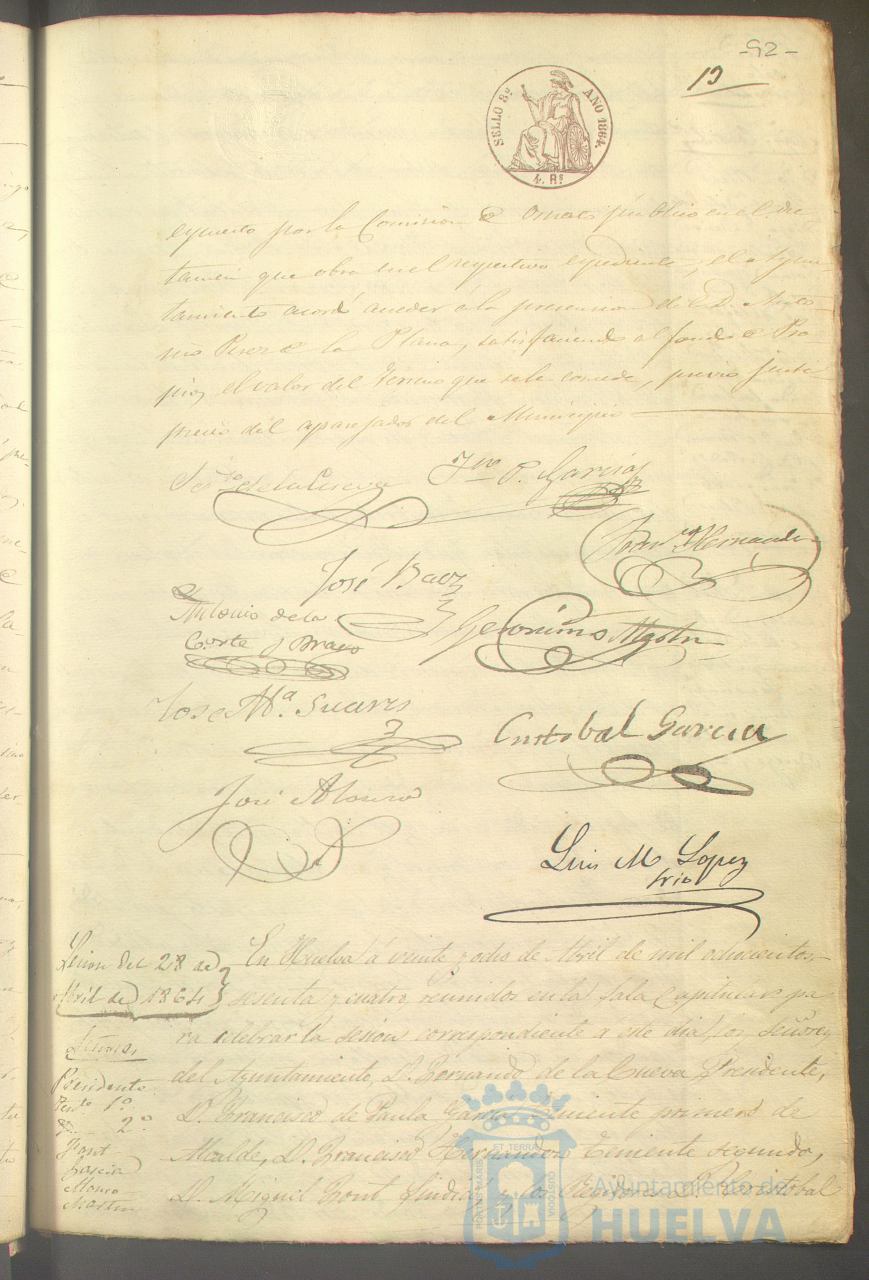 -92-
19
SELLO 8º AÑO 1864.
4. Rs
expuesto por la Comision de Ornato público en el dic-
tamen que obra en el respectivo expediente, el Ayun-
tamiento acordó acceder á la pretension de D. Anto-
nio Perez de la Plana, satisfaciendo al fondo de Pro-
pios el valor del terreno que se le concede, previo justi-
precio del aparejador del Municipio
de la Cueva
Fco P. Garcia
Hernandez
José Baez
Antonio de la
Corte y Bravo
Geronimo Martin
Jose Mª. Suares
Cristobal Garcia
José Alonso
Luis M Lopez
Srio
Sesion del 28 de
Abril de 1864
Señores
Presidente
Tente 1º
2º
Pont
Garcia
Alonso
Martin
En Huelva á veinte y ocho de Abril de mil ochocientos
sesenta y cuatro reunidos en la Sala Capitular pa
ra celebrar la sesion correspondiente a este dia los Señores
del Ayuntamiento, D. Fernando de la Cueva Presidente,
D. Francisco de Paula Garcia Teniente primero de
Alcalde, D. Francisco Hernandez Teniente segundo,
D. Miguel Pont Sindico y los Regidores D. Cristobal
PORTUS MARIS ET TERRAE CUSTODIA
Ayuntamiento de
HUELVA